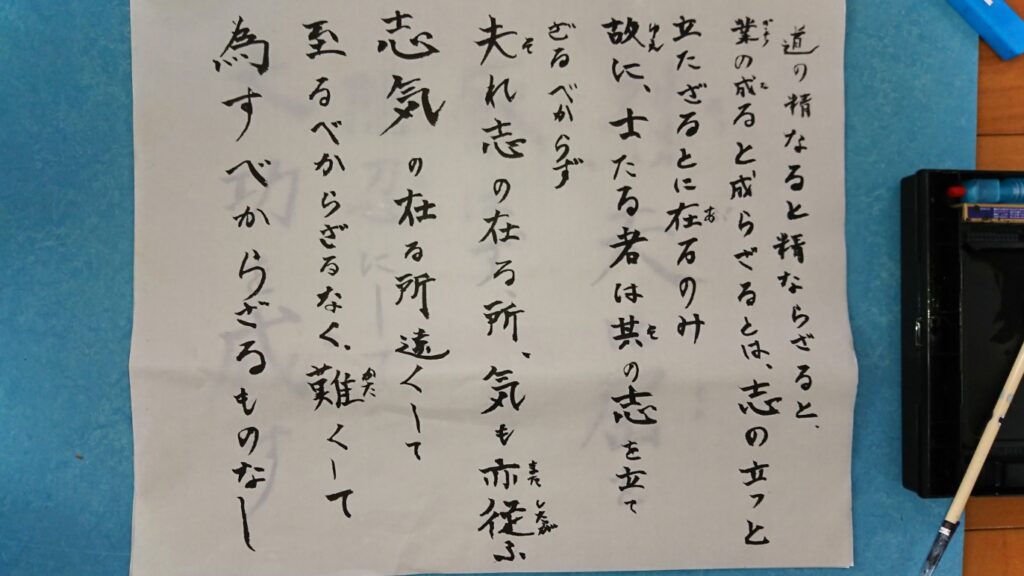 道の精なると精ならざると、
業の成ると成らざるとは、志の立つと
立たざるとに在るのみ
故に、士たる者は其の志を立て
ざるべからず
夫れ志の在る所、気も亦従ふ
志気の在る所遠くして
至るべからざるなく、難くして
為すべからざるものなし